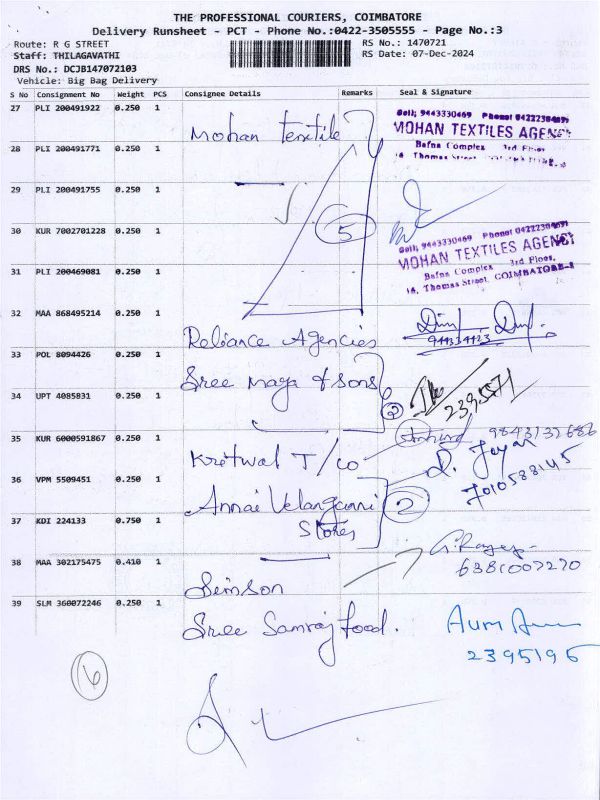 THE PROFESSIONAL COURIERS, COIMBATORE
Delivery Runsheet - PCT - Phone No.:0422-3505555 - Page No.:3
Route: R G STREET
RS No.: 1470721
Staff: THILAGAVATHI
RS Date: 07-Dec-2024
DRS No.: DCJB147072103
Vehicle: Big Bag Delivery
S No Consignment No Weight PCS Consignee Details Remarks Seal & Signature
27 PLI 200491922 0.250 1
Mohan textile
Cell: 9443330469 Phone: 04222304691
MOHAN TEXTILES AGENCY
Bafna Complex 3rd Floor
28 PLI 200491771 0.250 1
16 Thomas Street
29 PLI 200491755 0.250 1
30 KUR 7002701228 0.250 1
5
Cell: 9443330469 Phone: 04222304691
MOHAN TEXTILES AGENCY
Bafna Complex 3rd Floor,
16, Thomas Street, COIMBATORE-1
31 PLI 200469081 0.250 1
32 MAA 868495214 0.250 1
Reliance Agencies
33 POL 8094426 0.250 1
Sree Maga & Sons
2395871
34 UPT 4085831 0.250 1
2
35 KUR 6000591867 0.250 1
9843132686
Kritwal T/co
36 VPM 5509451 0.250 1
7010588145
Annai Velanganni
Stores
2
37 KDI 224133 0.750 1
38 MAA 302175475 0.410 1
6381007270
Simson
39 SLM 360072246 0.250 1
Sree Samraj food.
2395195
16